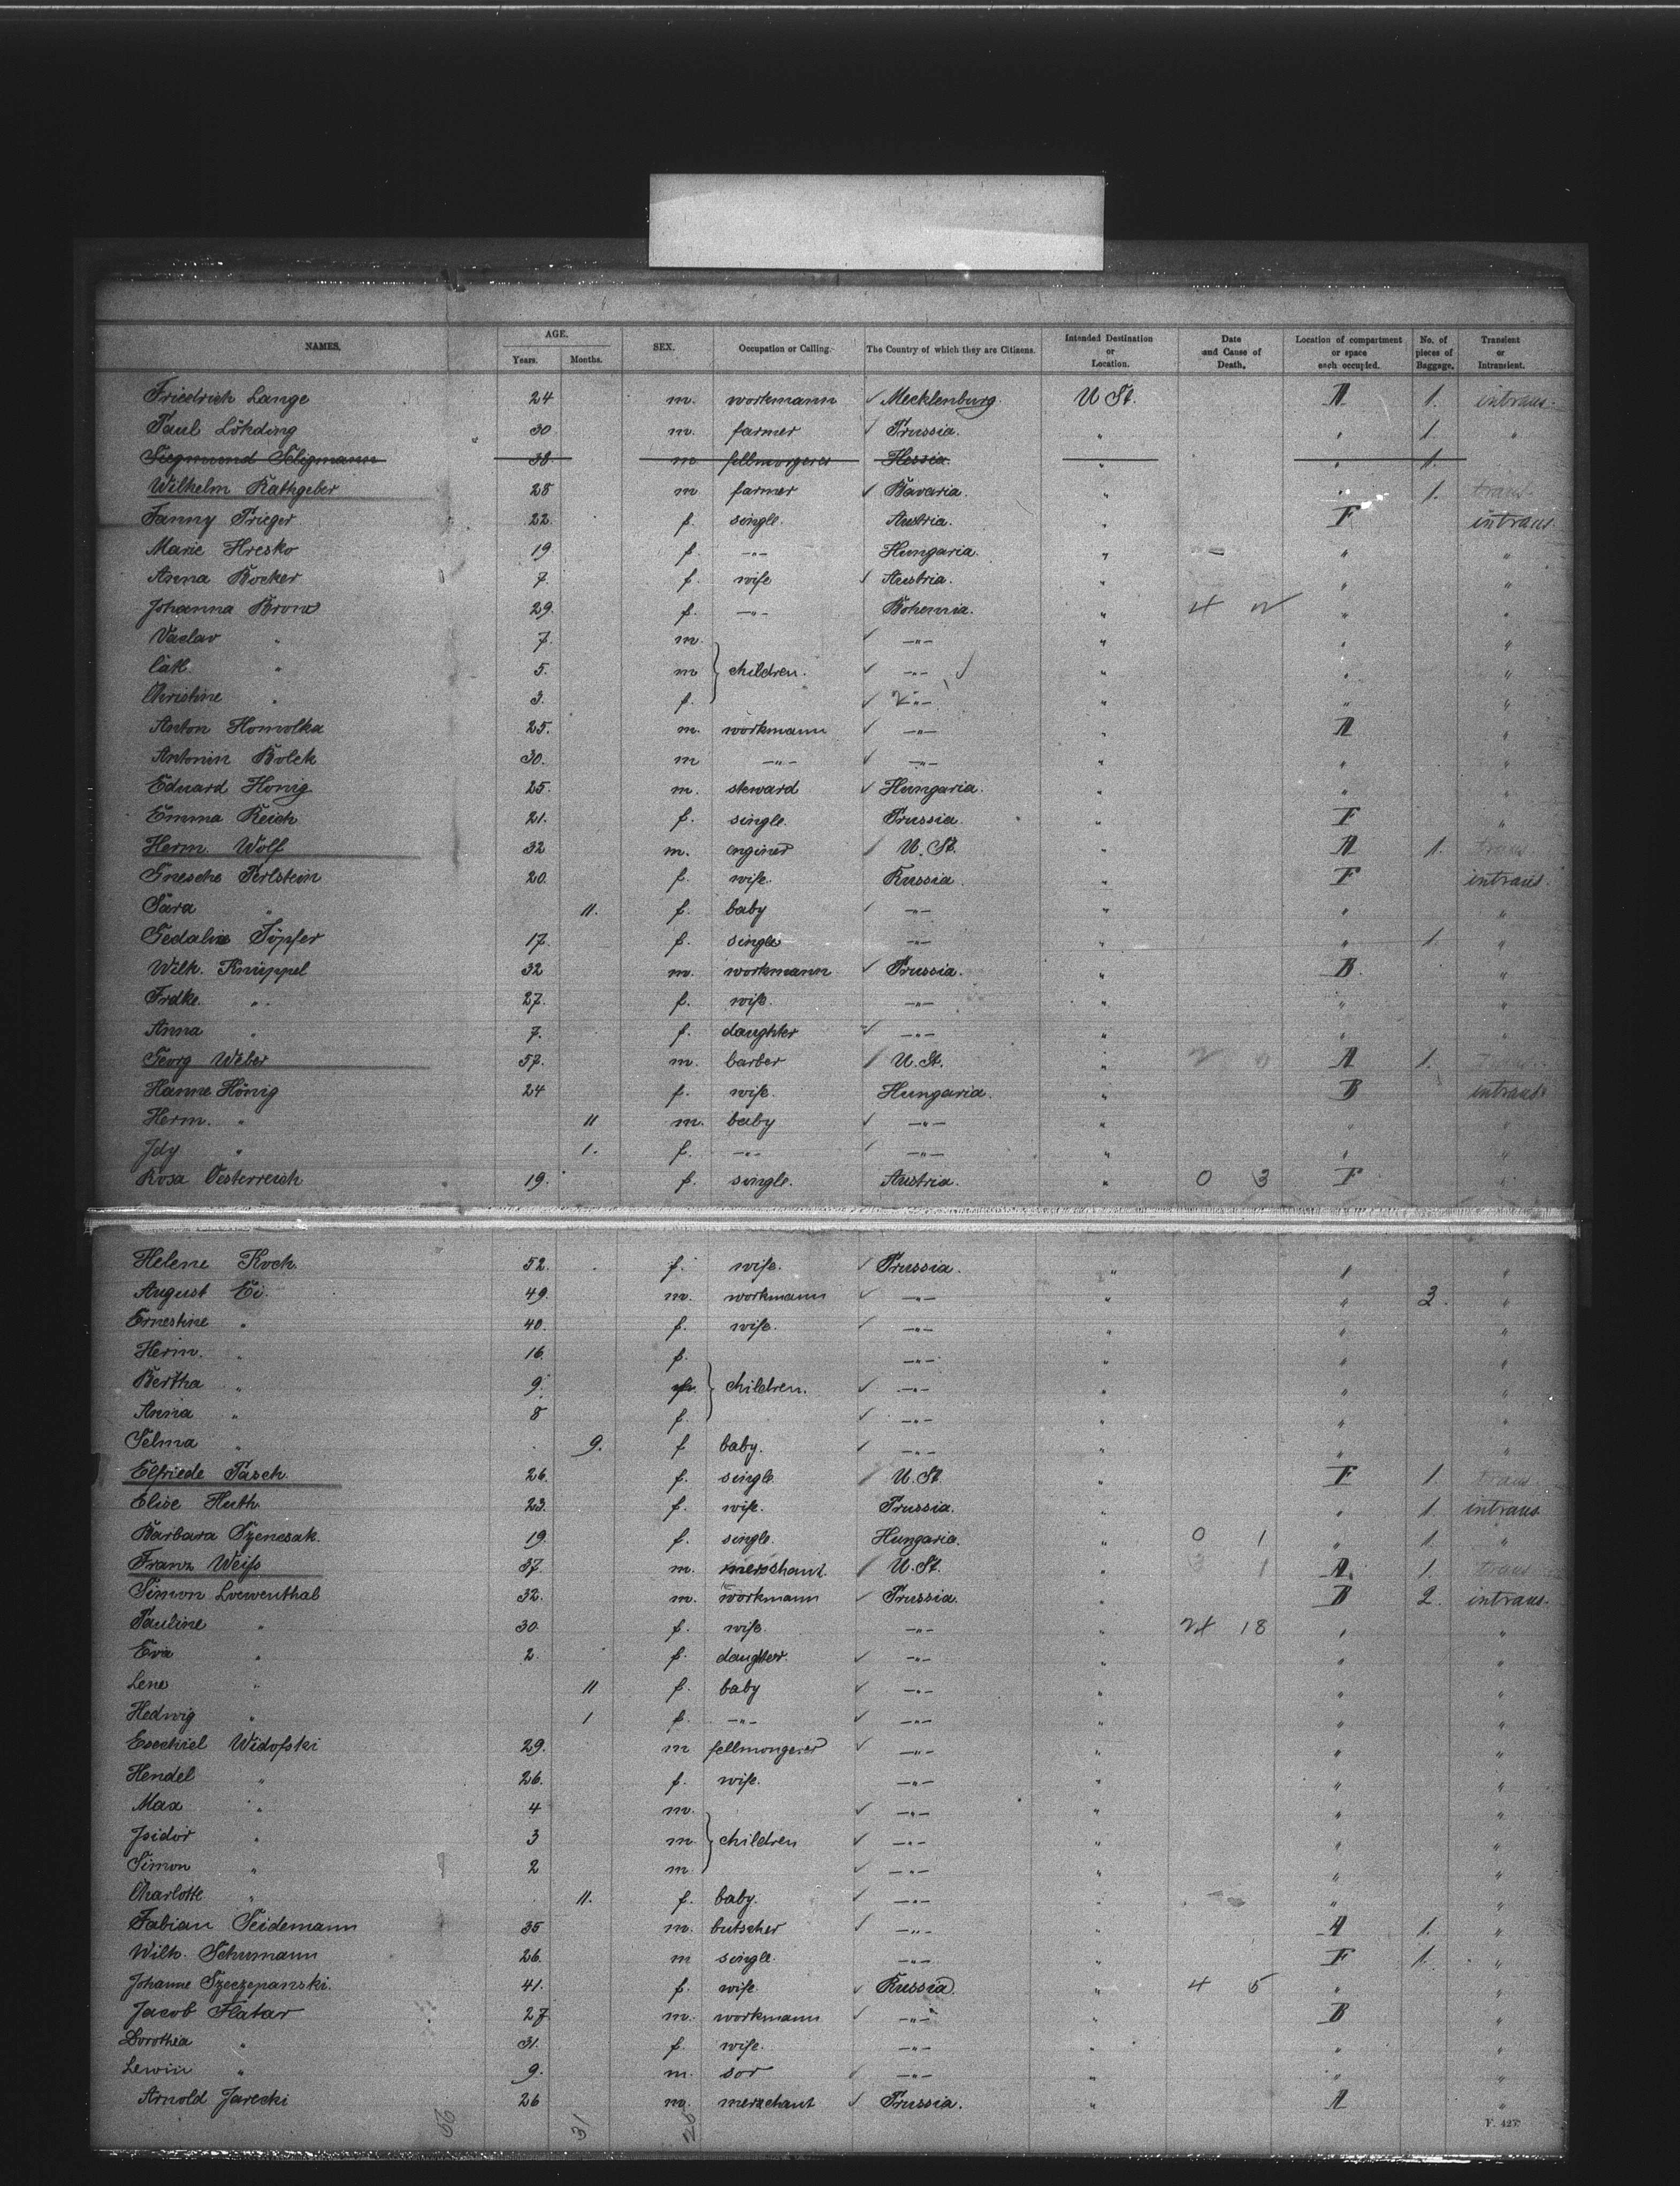 NAMES. AGE. Years. Months. SEX. Occupation or Calling. The Country of which they are Citizens. Intended Destination or Location. Date and Cause of Death. Location of compartment or space each occupied. No. of pieces of Baggage. Transient or Intransient.
Friedrich Lange 24 m. workmann ✓ Mecklenburg. U St. A 1. intrans.
Paul Lökding 30 m. farmer ✓ Prussia. " " 1. "
Siegmund Seligmann 38. m. fellmongerer Hessia. " " 1.
Wilhelm Rathgeber 28 m farmer ✓ Bavaria. " " 1. trans.
Fanny Prieger 22. f. single. Austria. " F intrans.
Marie Hresko 19. f. -"- Hungaria. " " "
Anna Bocker 7. f. wife ✓ Austria. " " "
Johanna Brow 29. f. -"- Bohemia. " 4 " "
Vaclav " 7. m. ✓ -"- " " "
Cath. " 5. m children. ✓ -"- ✓ " " "
Christine " 3. f. ✓ -"- " " "
Anton Homolka 25. m. workmann ✓ -"- " A "
Antonin Bolek 30. m -"- ✓ -"- " " "
Eduard Honig 25. m. steward ✓ Hungaria. " " "
Emma Reich 21. f. single. Prussia. " F "
Herm. Wolf 32 m. enginer / U. St. " A 1. trans.
Gnesche Perlstein 20. f. wife. Russia. " F intrans.
Sara " 11. f. baby ✓ -"- " " "
Gedalie Töpfer 17. f. single -"- " " 1. "
Wilh. Knüppel 32 m. workmann ✓ Prussia. " B. "
Frdke. " 27. f. wife. -"- " " "
Anna " 7. f. daughter ✓ -"- " " "
Georg Weber 57. m. barber / U. St. " A 1. trans.
Hanne Hönig 24 f. wife. Hungaria. " B intrans.
Herm. " 11 m. baby ✓ -"- " " "
Jdy " 1. f. -"- ✓ -"- " " "
Rosa Oesterreich 19. f. single. Austria. " 0 3 F "
Helene Koch. 52. f. wife. ✓ Prussia. " " "
August Ei. 49. m. workmann ✓ -"- " " 3. "
Ernestine " 40. f. wife. ✓ -"- " " "
Herm. " 16. f. -"- " " "
Bertha " 9. children. ✓ -"- " " "
Anna " 8 f. ✓ -"- " " "
Selma " 9. f baby. ✓ -"- " " "
Elfriede Pasch. 26. f. single / U. St. " F 1. trans.
Elise Huth. 23. f. wife. Prussia. " " 1. intrans.
Barbara Szencsak. 19. f. single. Hungaria. " 0 1 " 1. "
Franz Weiß 37. m. merschant. / U. St. " 1 A. 1. trans
Simon Loewenthal 32. m. workmann ✓ Prussia. " B 2. intrans.
Pauline " 30. f. wife. -"- " 24 18 " "
Eva " 2. f. daughter. ✓ -"- " " "
Lene " 11 f. baby ✓ -"- " " "
Hedwig " 1 f. -"- ✓ -"- " " "
Esechiel Widofski 29. m fellmongerer ✓ -"- " " "
Hendel " 26. f. wife. -"- " " "
Max " 4 m. ✓ -"- " " "
Jsidor " 3 m. children ✓ -"- " " "
Simon " 2 m. ✓ -"- " " "
Charlotte " 11. f. baby. ✓ -"- " " "
Fabian Seidemann 35 m. butscher ✓ -"- " A 1. "
Wilh. Schumann 26. m single. -"- " F 1. "
Johanne Szeczepanski. 41. f. wife ✓ Russia. " 4 5 " "
Jacob Flatar 27 m. workmann ✓ -"- " B "
Dorothea " 31. f. wife. -"- " " "
Lewin " 9. m. son ✓ -"- " " "
Arnold Jarecki 26 m. merschant ✓ Prussia. " A "
56 31 25
F. 427.